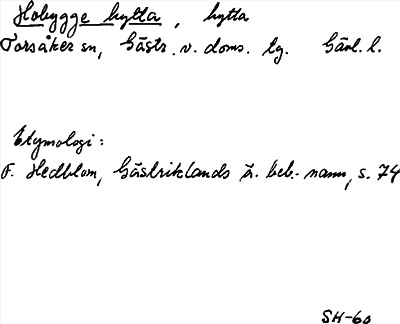 Hobygge hytta, hytta
Torsåker sn, Gästr. v. doms. tg. Gävl. l.
Etymologi:
F. Hedblom, Gästriklands ä. beb.-namn, s. 74
SH-60